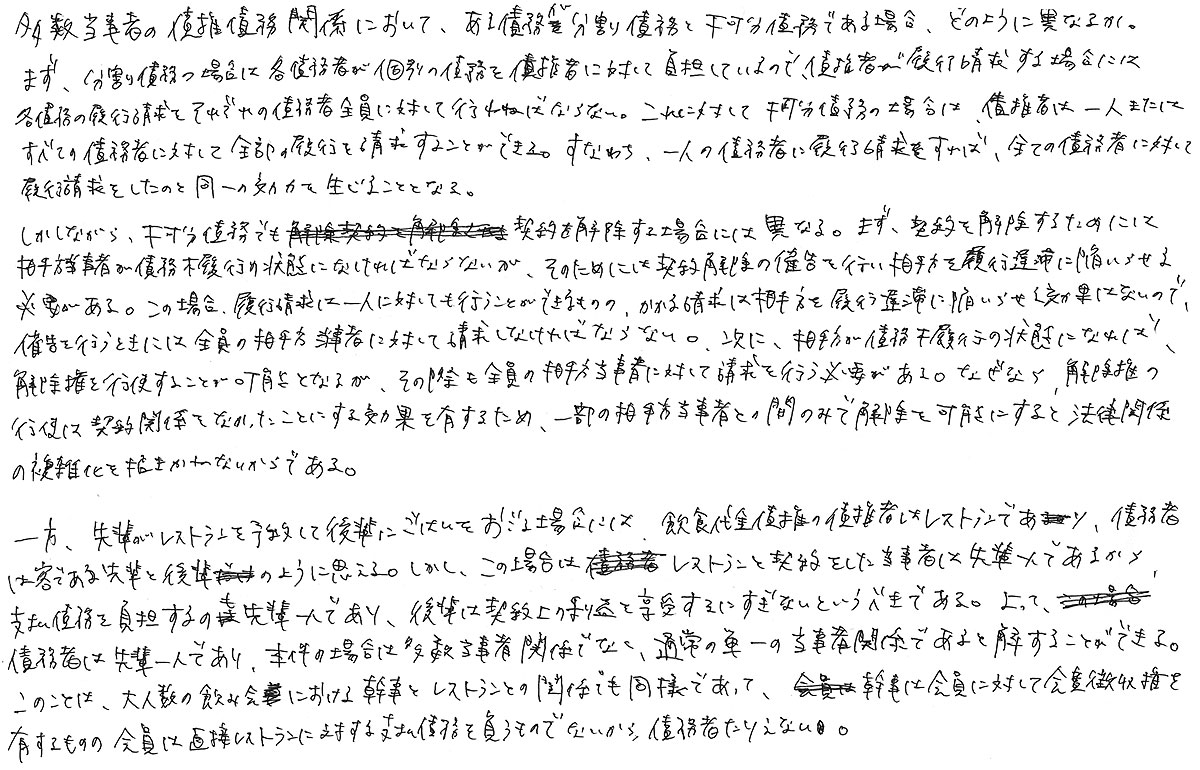 多数当事者の債権債務関係において、ある債務が分割債務と不可分債務である場合、どのように異なるか。
まず、分割債務の場合は各債務者が個別の債務を債権者に対して負担しているので、債権者が履行請求する場合には
各債務の履行請求をそれぞれの債務者全員に対して行わねばならない。これに対して不可分債務の場合は、債権者は一人または
すべての債務者に対して全部の履行を請求することができる。すなわち、一人の債務者に履行請求をすれば、全ての債務者に対して
履行請求をしたのと同一の効力を生じることとなる。
しかしながら、不可分債務でも契約を解除する場合には異なる。まず、契約を解除するためには
相手方当事者が債務不履行の状態になければならないが、そのためには契約解除の催告を行い相手方を履行遅滞に陥いらせる
必要がある。この場合、履行請求は一人に対しても行うことができるものの、かかる請求は相手方を履行遅滞に陥いらせる効果はないので、
催告を行うときには全員の相手方当事者に対して請求しなければならない。次に、相手方が債務不履行の状態になれば、
解除権を行使することが可能となるが、その際も全員の相手方当事者に対して請求を行う必要がある。なぜなら、解除権の
行使は契約関係をなかったことにする効果を有するため、一部の相手方当事者との間のみで解除を可能にすると法律関係
の複雑化を招きかねないからである。
一方、先輩がレストランを予約して後輩にごはんをおごる場合には、飲食代金債権の債権者はレストランであり、債務者
は客である先輩と後輩のように思える。しかし、この場合はレストランと契約をした当事者は先輩一人であるから、
支払債務を負担するのは先輩一人であり、後輩は契約上の利益を享受するにすぎないというべきである。よって、
債務者は先輩一人であり、本件の場合は多数当事者関係でなく、通常の単一の当事者関係であると解することができる。
このことは、大人数の飲み会における幹事とレストランとの関係でも同様であって、幹事は会員に対して会費徴収権を
有するものの会員は直接レストランに対する支払債務を負うものでないから、債務者たりえない。